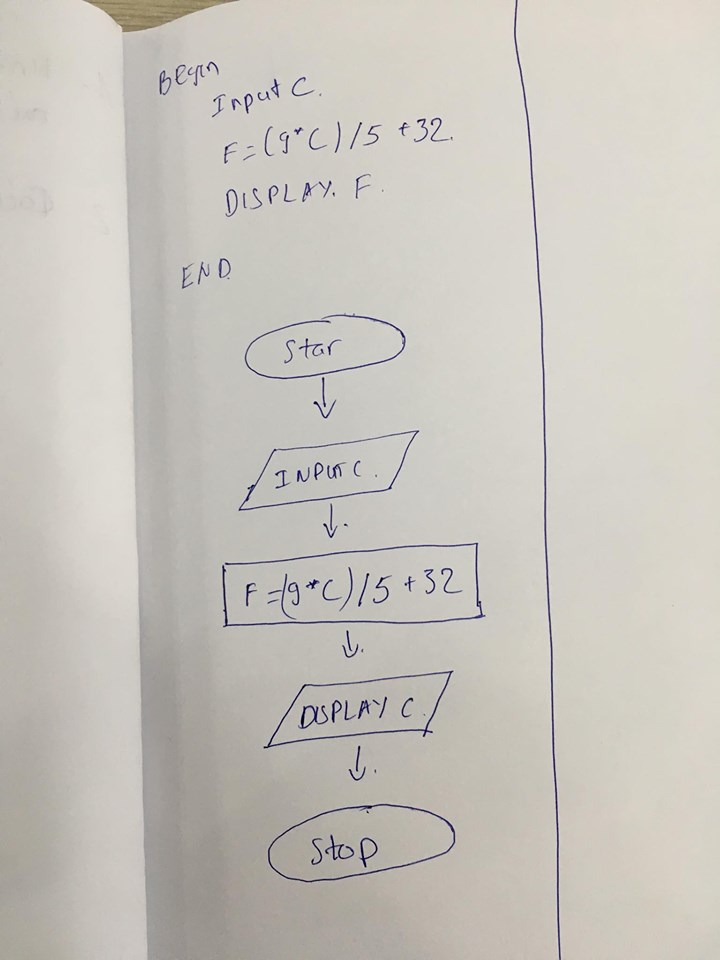 Begin
Input C.
F=(9*C)/5 +32.
DISPLAY. F.
END
Star
INPUT C.
F=(9*C)/5 +32
DISPLAY C.
Stop